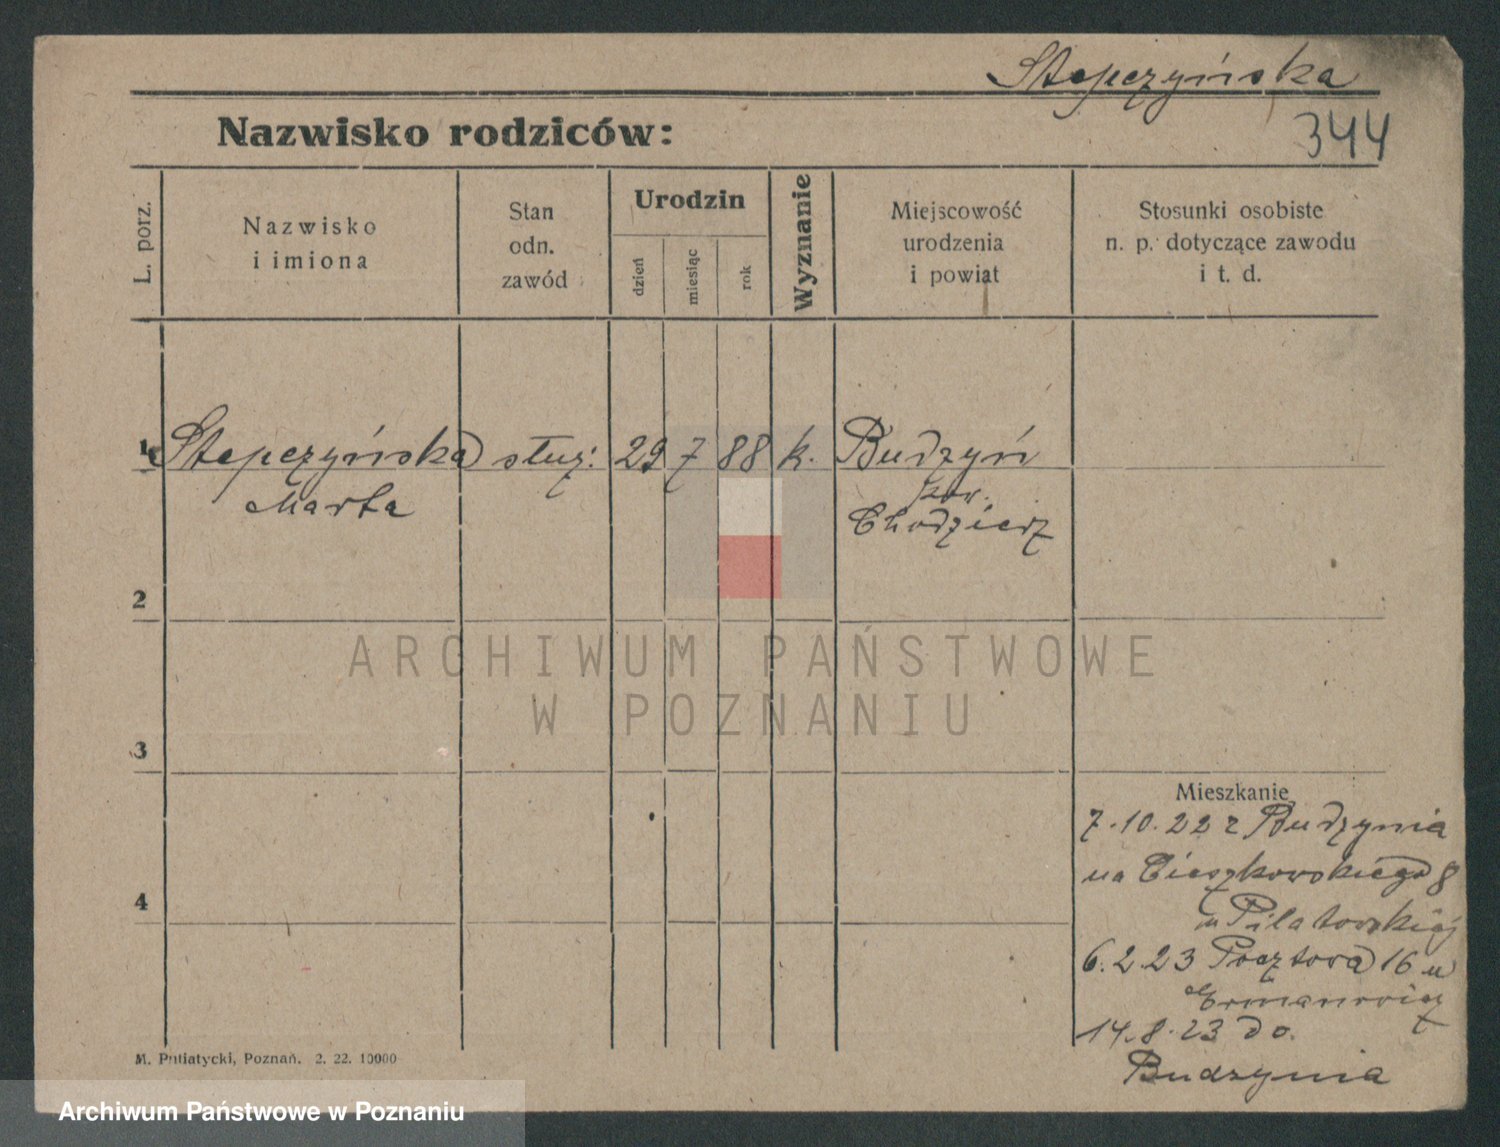 Stepczyńska
344
Nazwisko rodziców:
L. porz.
Nazwisko
i imiona
Stan
odn.
zawód
Urodzin
dzień
miesiąc
rok
Wyznanie
Miejscowość
urodzenia
i powiat
Stosunki osobiste
n. p. dotyczące zawodu
i t. d.
1 Stepczyńska służ. 29 7 88 k. Budzyń
Marta
pow.
Chodzież
2
ARCHIWUM PAŃSTWOWE
W POZNANIU
3
Mieszkanie
7.10.22 z Budzynia
na Cieszkowskiego 8
u Pilatowskiej
4
6.2.23 Pocztowa 16 u
14.8.23 do
Budzynia
M. Putiatycki, Poznań. 2. 22. 10000
Archiwum Państwowe w Poznaniu